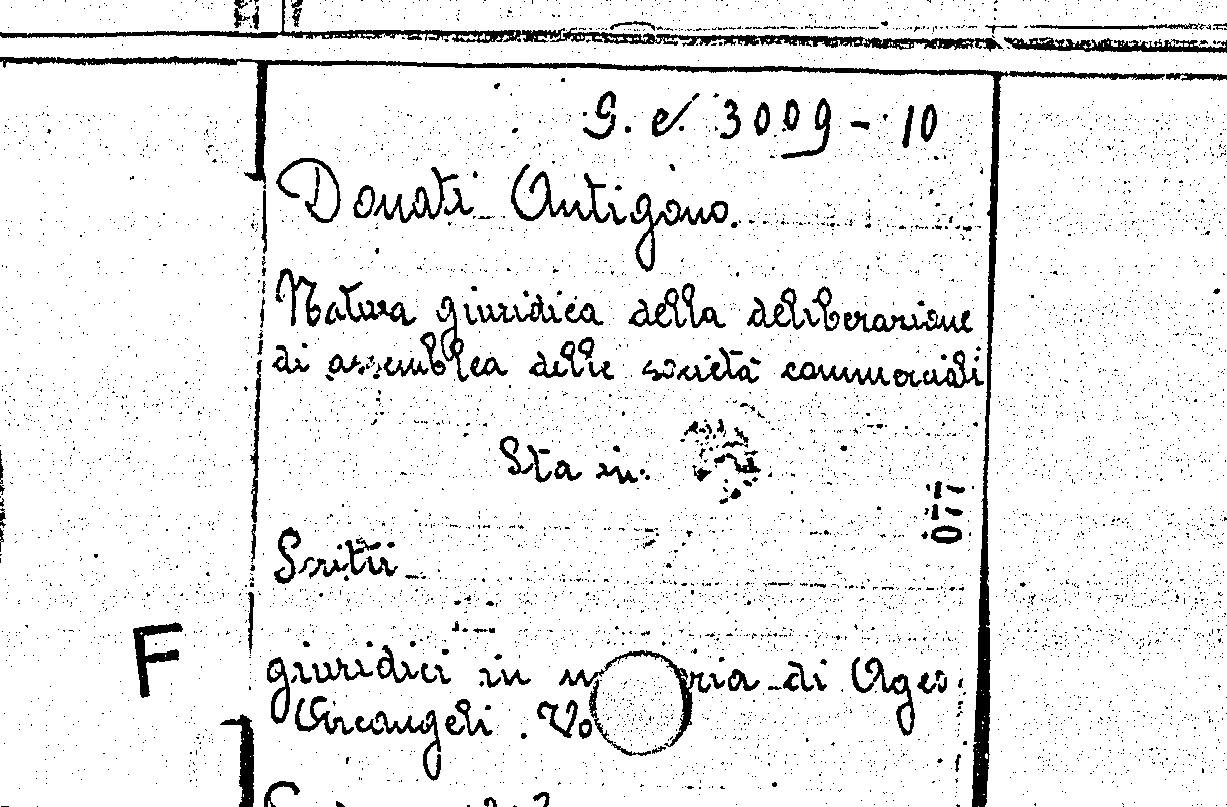 G. e. 3009-10
Donati Antigono.
Natura giuridica della deliberazione
di assemblea delle società commerciali
Sta in:
077
Scritti
F
giuridici in ria di Ageo
Arcangeli. Vo